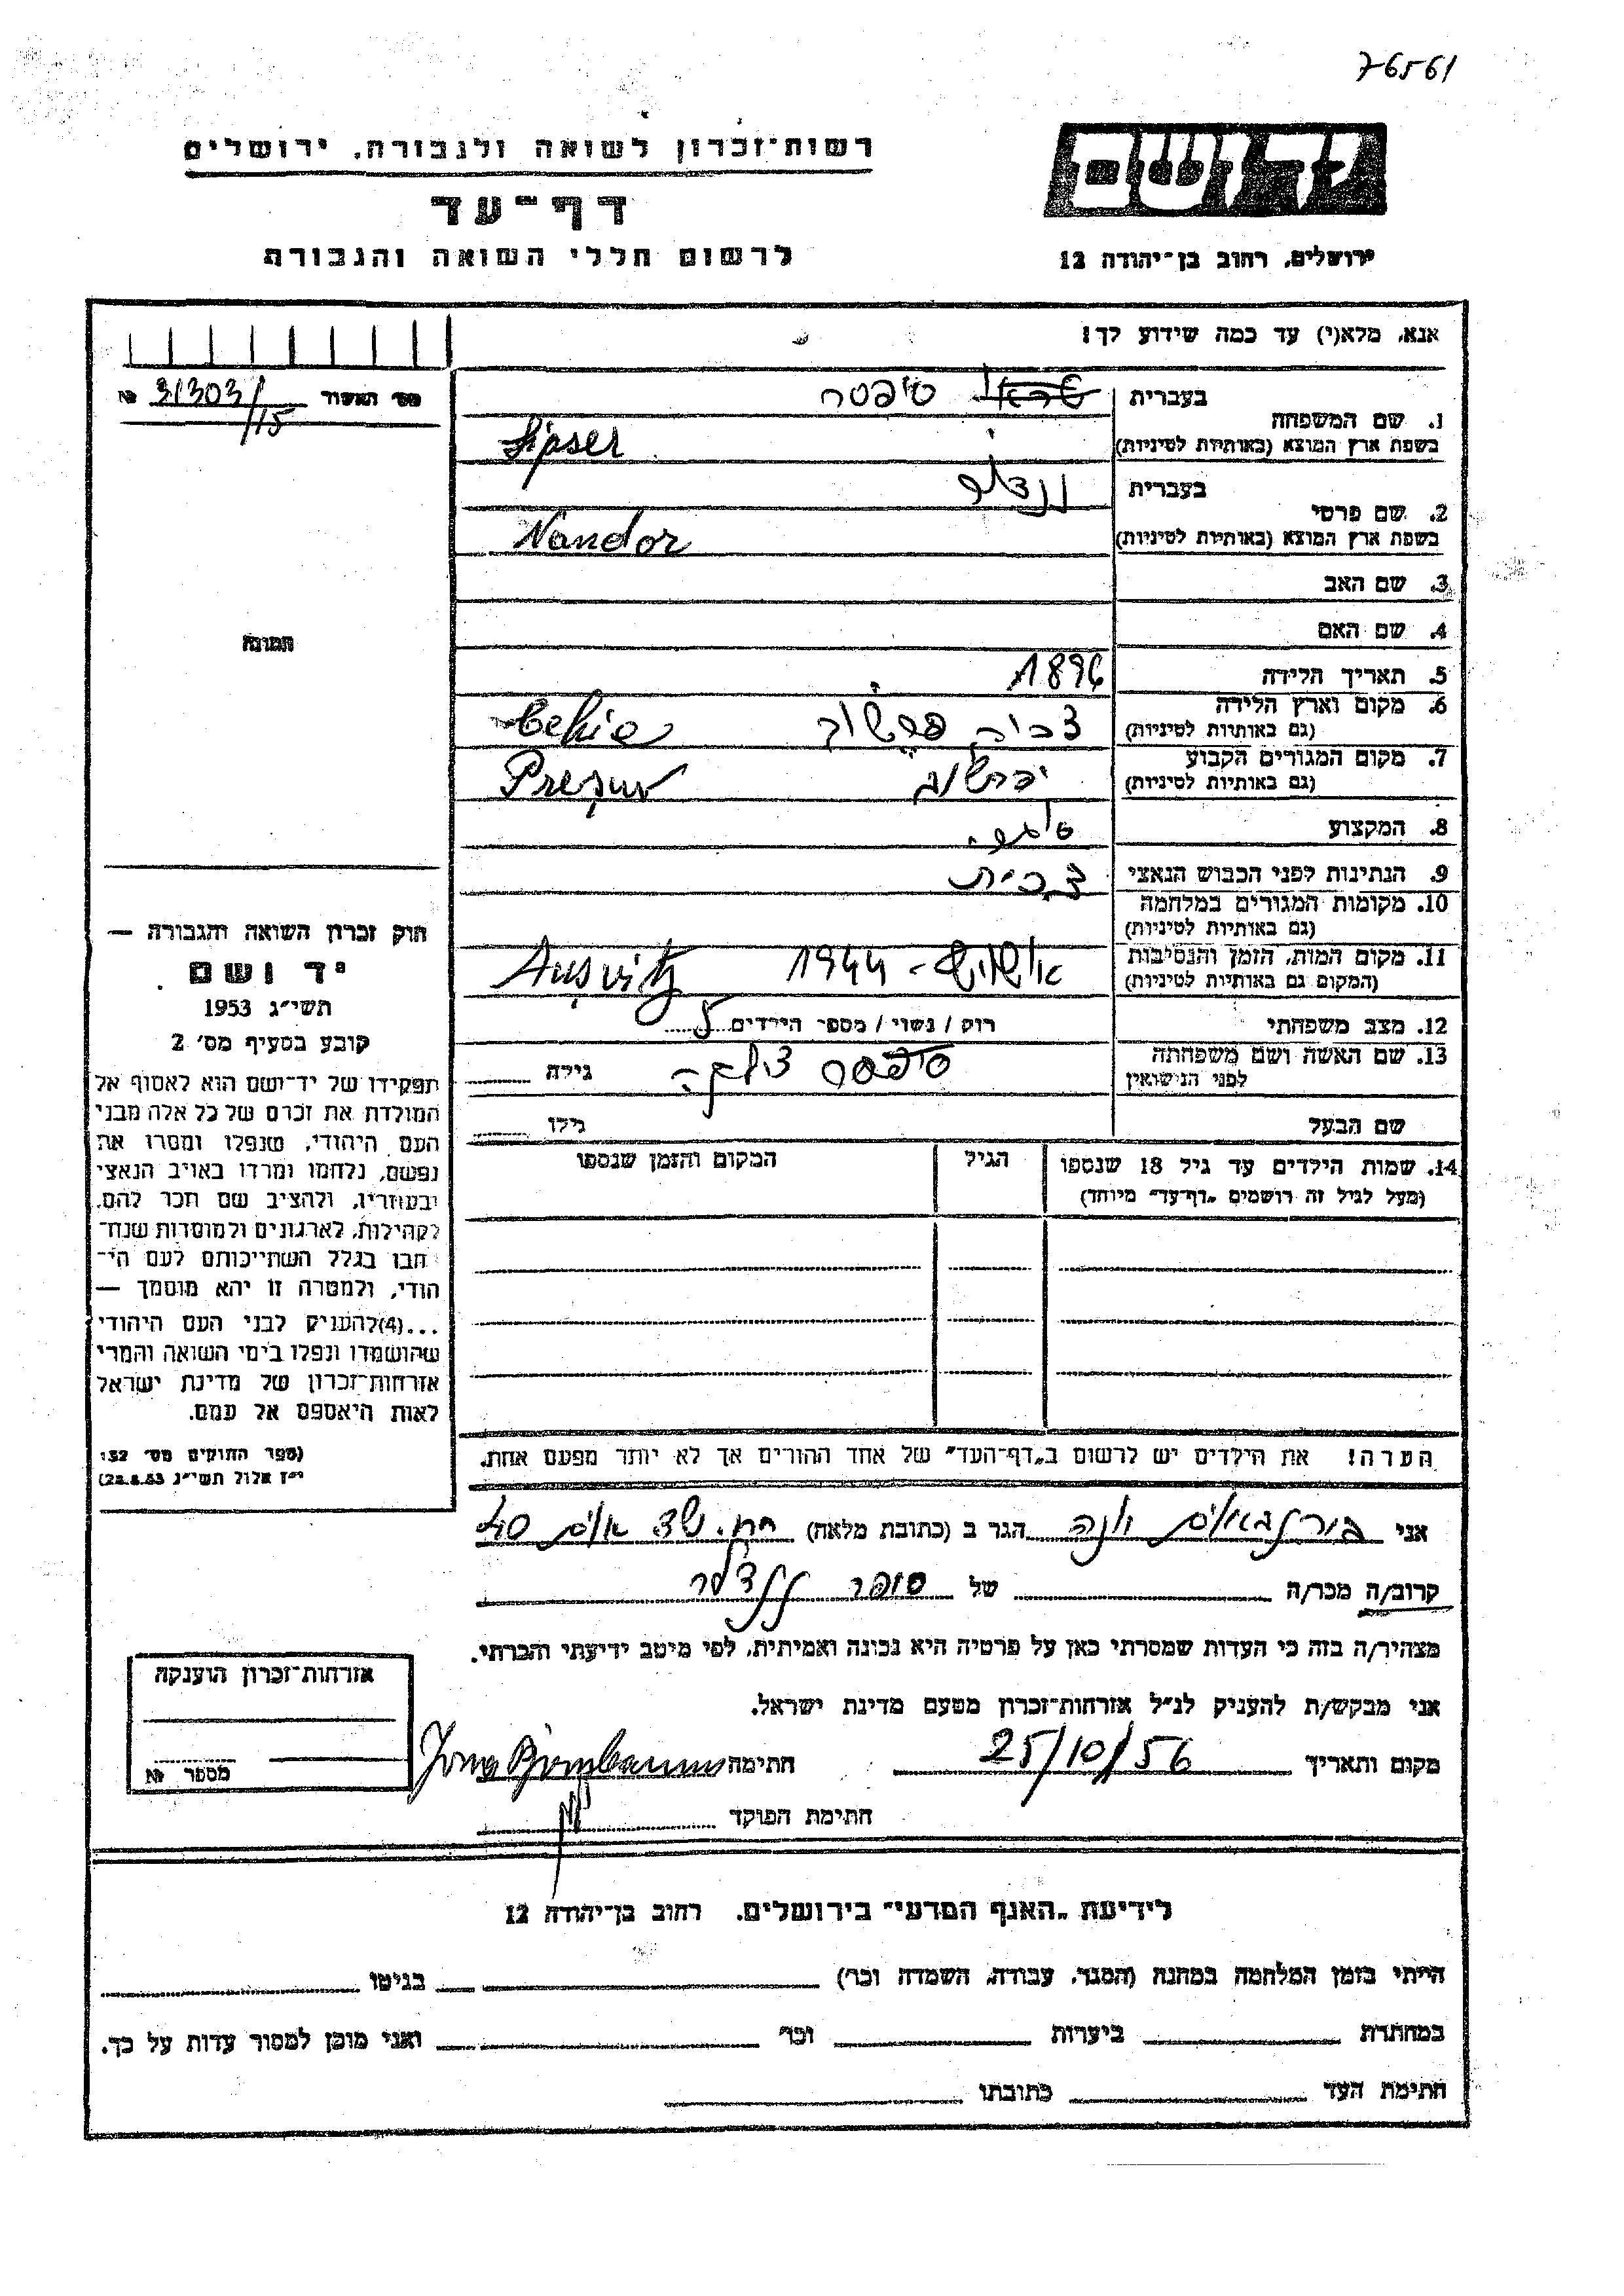 76561
יד ושם
ירושלים, רחוב בן־יהודה 12
רשות־זכרון לשואה ולגבורה, ירושלים
דף־עד
לרשום חללי השואה והגבורה
אנא, מלא(י) עד כמה שידוע לך!
1. שם המשפחה
בעברית
סיפסר
בשפת ארץ המוצא (באותיות לטיניות)
Sipser
2. שם פרטי
בעברית
בשפת ארץ המוצא (באותיות לטיניות)
Nandor
3. שם האב
4. שם האם
5. תאריך הלידה 1896
6. מקום וארץ הלידה
(גם באותיות לטיניות)
7. מקום המגורים הקבוע
(גם באותיות לטיניות)
8. המקצוע
9. הנתינות לפני הכבוש הנאצי צ'כית
10. מקומות המגורים במלחמה
(גם באותיות לטיניות)
11. מקום המות, הזמן והנסיבות
(המקום גם באותיות לטיניות)
1944 Ausvitz
12. מצב משפחתי רוק / נשוי / מספר הילדים
13. שם האשה ושם משפחתה
לפני הנישואין
גילה
שם הבעל גילו
14. שמות הילדים עד גיל 18 שנספו
(מעל לגיל זה רושמים „דף־עד" מיוחד)
הגיל
המקום והזמן שנספו
הערה! את הילדים יש לרשום ב„דף־העד" של אחד ההורים אך לא יותר מפעם אחת.
מס' האשור 31303/15 №
תמונה
חוק זכרון השואה והגבורה —
יד ושם
תשי״ג 1953
קובע בסעיף מס׳ 2
תפקידו של יד־ושם הוא לאסוף אל
המולדת את זכרם של כל אלה מבני
העם היהודי, שנפלו ומסרו את
נפשם, נלחמו ומרדו באויב הנאצי
ובעוזריו, ולהציב שם וזכר להם,
לקהילות, לארגונים ולמוסדות שנח־
רבו בגלל השתייכותם לעם הי־
הודי, ולמטרה זו יהא מוסמך —
...(4)להעניק לבני העם היהודי
שהושמדו ונפלו בימי השואה והמרי
אזרחות־זכרון של מדינת ישראל
לאות היאספם אל עמם.
(ספר החוקים מס׳ 132
י״ז אלול תשי״ג 28.8.53)
אני הגר ב (כתובת מלאה)
קרוב/ה מכר/ה של
מצהיר/ה בזה כי העדות שמסרתי כאן על פרטיה היא נכונה ואמיתית, לפי מיטב ידיעתי והכרתי.
אני מבקש/ת להעניק לנ״ל אזרחות־זכרון מטעם מדינת ישראל.
מקום ותאריך 25/10/56 חתימה
חתימת הפוקד
אזרחות־זכרון הוענקה
מספר №
לידיעת „האגף המדעי" בירושלים, רחוב בן־יהודה 12
הייתי בזמן המלחמה במחנה (הסגר, עבודה, השמדה וכו׳) בגיטו
במחתרת ביערות וכו׳ ואני מוכן למסור עדות על כך.
חתימת העד כתובתו